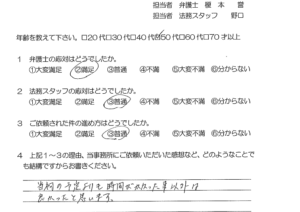 担当者 弁護士 榎本 誉
担当者 法務スタッフ 野口
年齢を教えて下さい。□20代□30代□40代☑50代□60代□70才以上
1 弁護士の応対はどうでしたか。
①大変満足 ②満足 ③普通 ④不満 ⑤大変不満 ⑥分からない
2 法務スタッフの応対はどうでしたか。
①大変満足 ②満足 ③普通 ④不満 ⑤大変不満 ⑥分からない
3 ご依頼された件の進め方はどうでしたか。
①大変満足 ②満足 ③普通 ④不満 ⑤大変不満 ⑥分からない
4 上記1~3の理由、当事務所にご依頼いただいた感想など、どのようなことで
も結構ですからお書きください。
当初の予定よりも時間がかかった事以外は
良かったと思います。